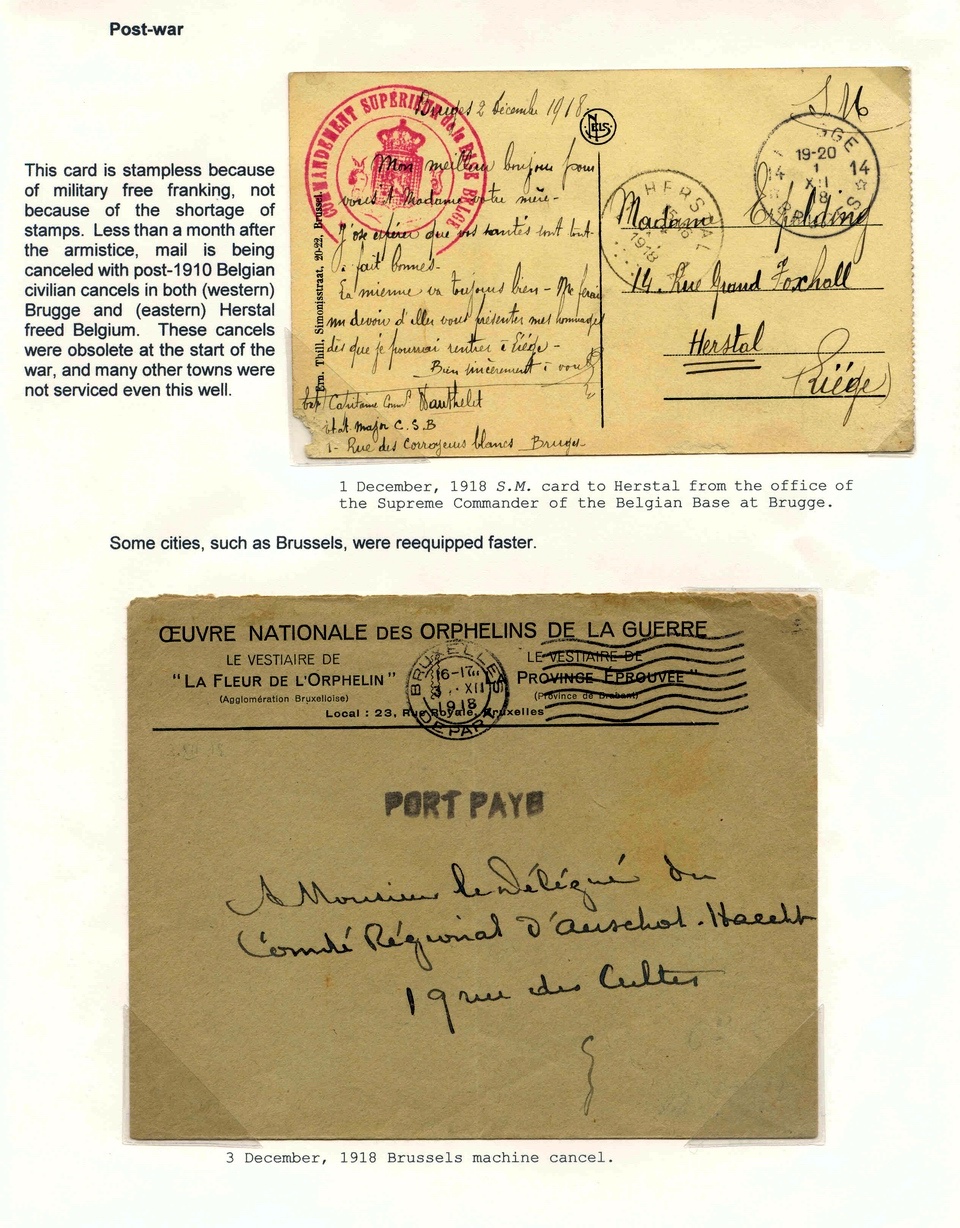 Post-war
This card is stampless because
of military free franking, not
because of the shortage of
stamps. Less than a month after
the armistice, mail is being
canceled with post-1910 Belgian
civilian cancels in both (western)
Brugge and (eastern) Herstal
freed Belgium. These cancels
were obsolete at the start of the
war, and many other towns were
not serviced even this well.
COMMANDEMENT SUPÉRIEUR de la BASE BELGE
Bruges 2 Décembre 1918
NELS
S M
Mon meilleur bonjour pour
vous & Madame votre mère -
J'ose espérer que vos santés sont tout
à fait bonnes -
La mienne va toujours bien - Me ferai
un devoir d'aller vous présenter mes hommages
dès que je pourrai rentrer à Liége -
Bien sincèrement à vous
Capitaine Comt
état major C.S.B
1 - Rue des Corroyeurs blancs Bruges
Ern. Thill, Simonisstraat, 20-22, Brussel
GGE
19-20
14 1 14
XII
18
HERSTAL
1918
Madame
14 Rue Grand Foxhall
Herstal
(Liége)
1 December, 1918 S.M. card to Herstal from the office of
the Supreme Commander of the Belgian Base at Brugge.
Some cities, such as Brussels, were reequipped faster.
ŒUVRE NATIONALE DES ORPHELINS DE LA GUERRE
LE VESTIAIRE DE
"LA FLEUR DE L'ORPHELIN"
(Agglomération Bruxelloise)
LE VESTIAIRE DE
PROVINCE ÉPROUVÉE"
(Province de Brabant)
Local : 23, Rue Royale, Bruxelles
BRUXELLES
16-17
3 XII
1918
DEPART
PORT PAYE
A Monsieur le Délégué du
Comité Régional d'Aerschot-Haecht
19 rue des Cultes
3 December, 1918 Brussels machine cancel.